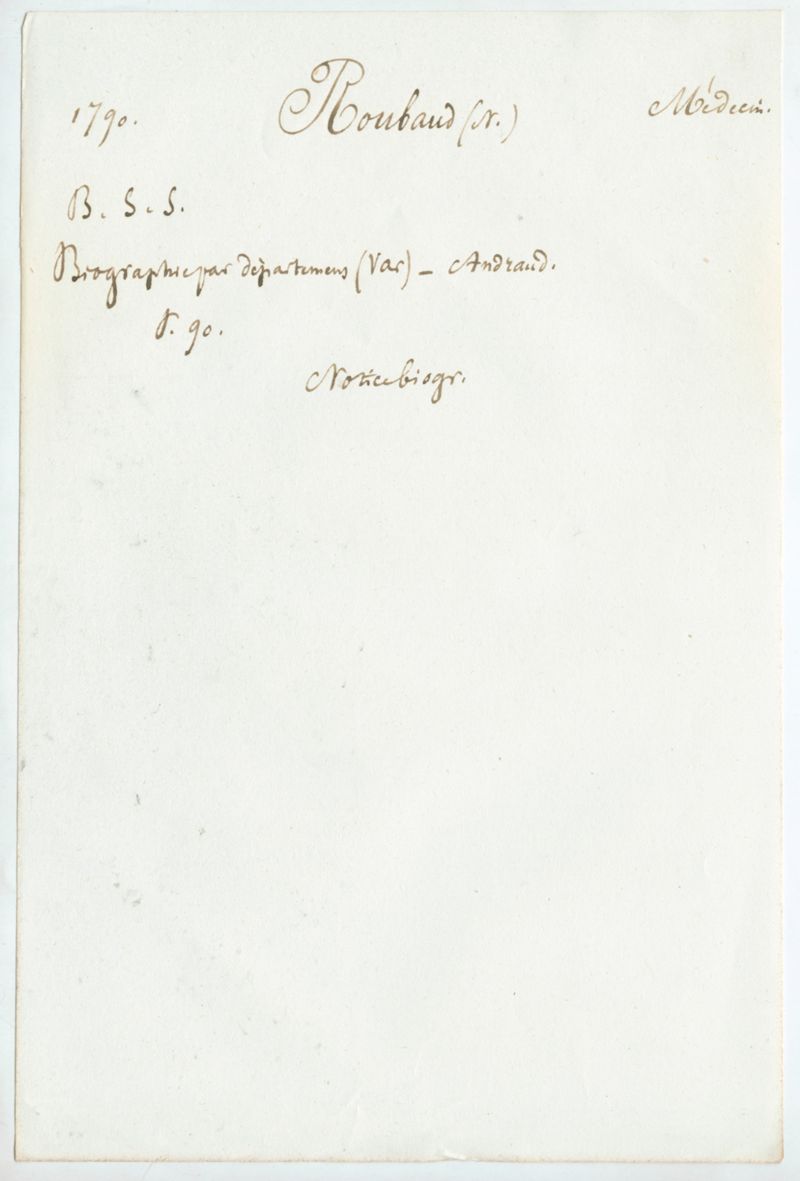 1790. Roubaud (N.) Médecin.
B. S. S.
Biographie par départemens (Var) - Andraud.
P. 90.
Notice biogr.